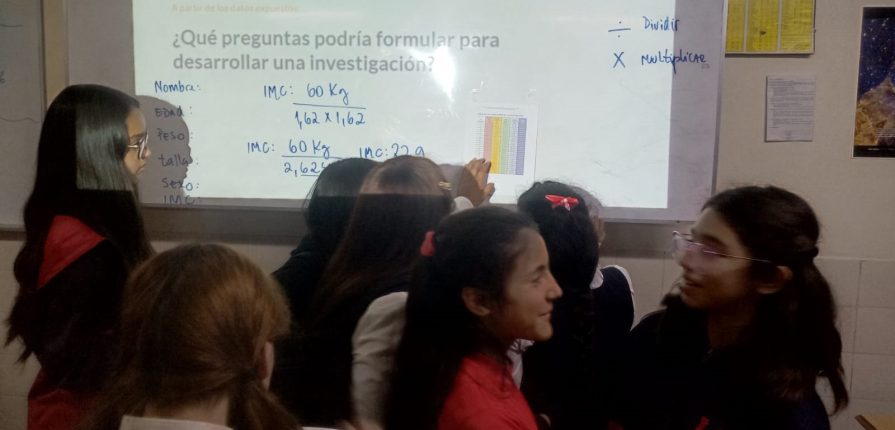 A partir de los datos expuestos:
¿Qué preguntas podría formular para
desarrollar una investigación?
÷ Dividir
X Multiplicar
Nombre:
EDAD:
PESO:
talla:
Sexo:
IMC:
IMC: 60 Kg
1,62 x 1,62
IMC: 60 Kg
2,624
IMC: 22.9